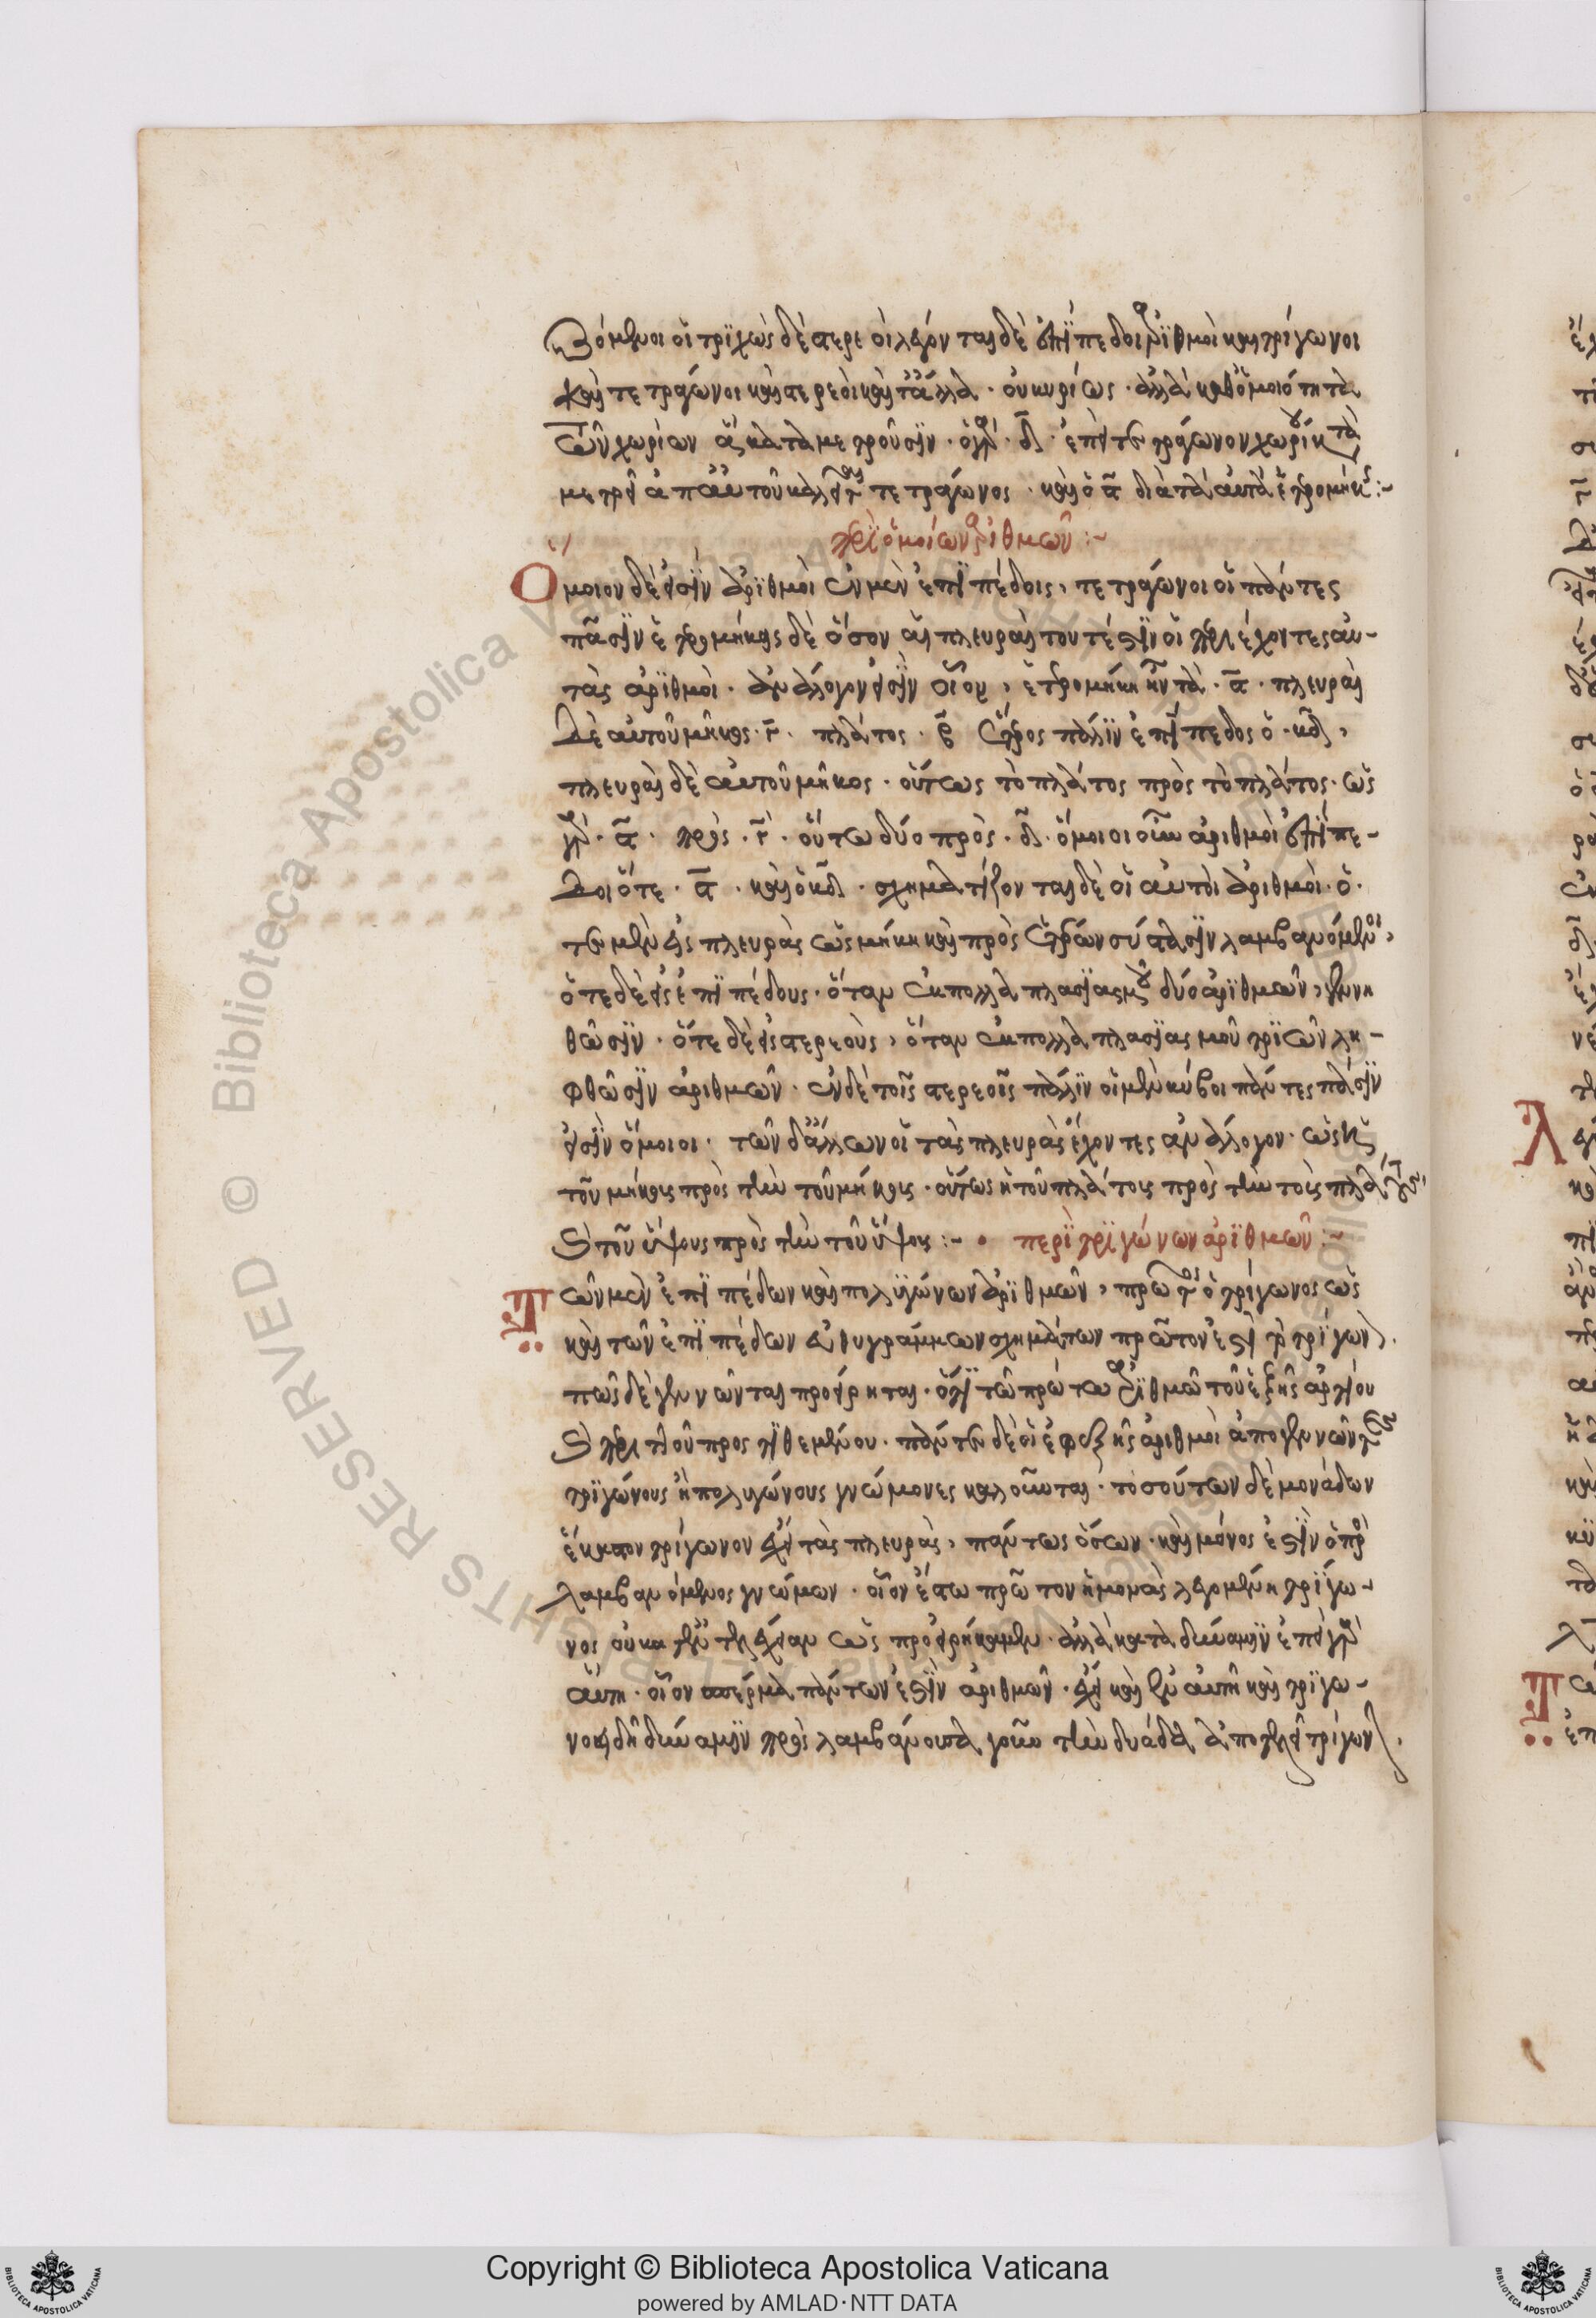 βόμενοι οἱ τριχῶς δὲ στερεοὶ λέγονται δὲ ἐπίπεδοι ἀριθμοὶ καὶ τρίγωνοι
καὶ τετράγωνοι καὶ στερεοὶ καὶ τἆλλα · οὐ κυρίως · ἀλλὰ καθ' ὁμοιότητα
τῶν χωρίων ἃ καταμετροῦσιν · ὁ γὰρ · δ · ἐπεὶ τετράγωνον χωρίον κατα
μετρεῖ ἀπ' αὐτοῦ καλεῖται τετράγωνος · καὶ ὁ ϛ διὰ τὰ αὐτὰ ἑτερομήκης :~
περὶ ὁμοίων ἀριθμῶν :~
Ὅμοιοι δέ εἰσιν ἀριθμοὶ ἐν μὲν ἐπιπέδοις, τετράγωνοι οἱ πάντες
πᾶσιν ἑτερομήκεις δὲ ὅσον αἱ πλευραὶ τουτέστιν οἱ περιέχοντες αὐ-
τὰς ἀριθμοὶ · ἀνάλογόν εἰσιν οἷον, ἑτερομήκη · ϛ · πλευραὶ
δὲ αὐτοῦ μῆκος · γ · πλάτος · β ἕτερος πάλιν ἐπίπεδος ὁ · κδ,
πλευραὶ δὲ αὐτοῦ μῆκος · οὕτως τὸ πλάτος πρὸς τὸ πλάτος · ὡς
γὰρ · ϛ · πρὸς · γ · οὕτω δύο πρὸς · δ · ὅμοιοι οὖν ἀριθμοὶ ἐπίπε-
δοι ὅτε · ϛ · καὶ ὁ κδ · σχηματίζονται δὲ οἱ αὐτοὶ ἀριθμοὶ · ὁ ·
τε μὲν εἰς πλευρὰς ὡς μήκη καὶ πρὸς ἑτέρων σύστασιν λαμβανόμενοι,
ὅτε δὲ εἰς ἐπιπέδους · ὅταν ἐκ πολλαπλασιασμοῦ δύο ἀριθμῶν, γενη
θῶσιν · ὅτε δὲ εἰς στερεοὺς, ὅταν ἐκ πολλαπλασιασμοῦ τριῶν λη-
φθῶσιν ἀριθμῶν · ἐν δὲ τοῖς στερεοῖς πάλιν οἱ μὲν κύβοι πάντες πᾶσιν
εἰσὶν ὅμοιοι · τῶν δ' ἄλλων οἱ τὰς πλευρὰς ἔχοντες ἀνάλογον · ὡς ἡ
τοῦ μήκους πρὸς τὴν τοῦ μήκους · οὕτως ἡ τοῦ πλάτους πρὸς τὴν τοῦ πλάτους,
καὶ τοῦ ὕψους πρὸς τὴν τοῦ ὕψους :~ · περὶ τριγώνων ἀριθμῶν :~
Τῶν μὲν ἐπιπέδων καὶ πολυγώνων ἀριθμῶν, πρῶτος ὁ τρίγωνος ὡς
καὶ τῶν ἐπιπέδων εὐθυγράμμων σχημάτων πρῶτον ἐστὶ τὸ τρίγωνον.
πῶς δὲ γεννῶνται προείρηται · ὅτι τῷ πρώτῳ ἀριθμῷ τοῦ ἑξῆς ἀρτίου
καὶ περιττοῦ προστιθεμένου · πάντες δὲ οἱ ἐφεξῆς ἀριθμοὶ ἀπογεννῶντες
τριγώνους ἢ πολυγώνους γνώμονες καλοῦνται · τοσούτων δὲ μονάδων
ἕκαστον τρίγωνον ἔχει τὰς πλευρὰς, πάντως ὅσων · καὶ μόνος ἐστὶν ὁ προσ
λαμβανόμενος γνώμων · οἷον ἔστω πρῶτον ἡ μονὰς λεγομένη τρίγω-
νος οὐ κατ' ἐντελέχειαν ὡς προειρήκαμεν · ἀλλὰ κατὰ δύναμιν ἐπεὶ γὰρ
αὕτη · οἷον σπέρμα πάντων ἐστὶν ἀριθμῶν · ἔχει καὶ ἐν αὐτῇ καὶ τριγω-
νοειδῆ δύναμιν προσλαμβάνουσα γοῦν τὴν δυάδα ἀποτελεῖ τρίγωνον.